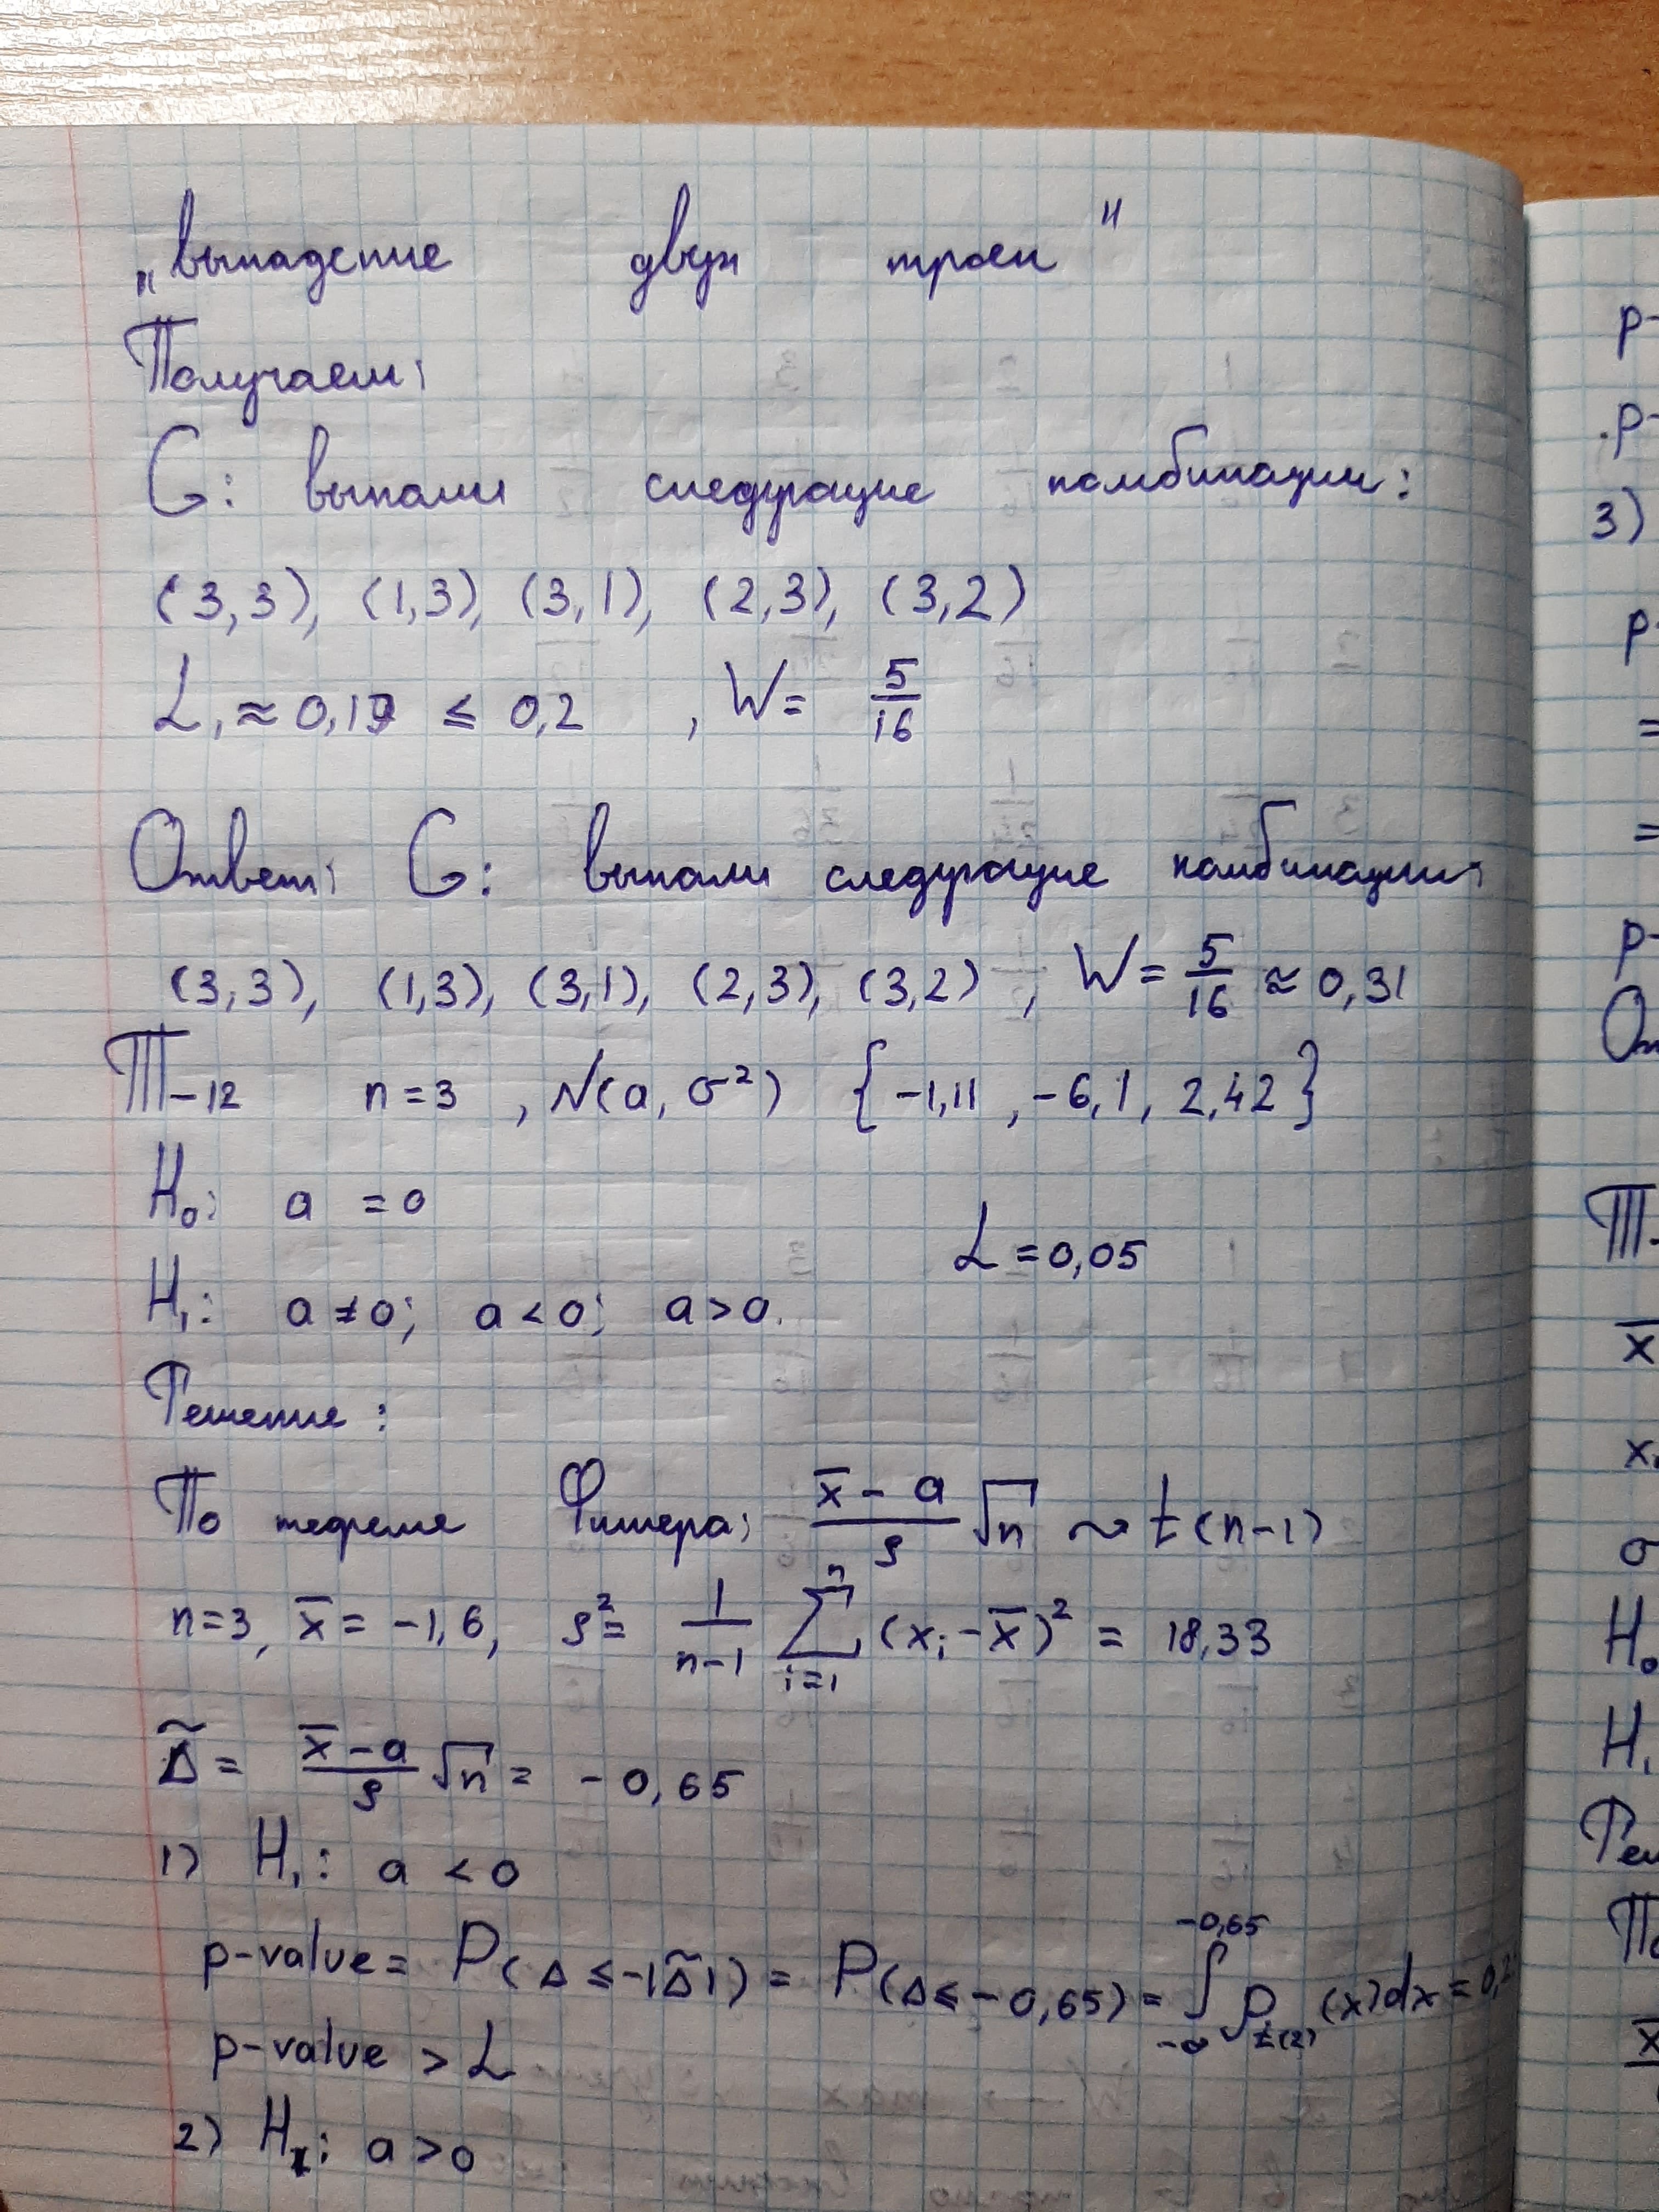 „выпадение двух троек"
Получаем:
G: выпали следующие комбинации:
(3,3), (1,3), (3,1), (2,3), (3,2)
L₁ ≈ 0,19 ≤ 0,2 , W = 5/16
Ответ: G: выпали следующие комбинации:
(3,3), (1,3), (3,1), (2,3), (3,2) , W = 5/16 ≈ 0,31
T-12 n=3 , N(a, σ²) {-1,11 , -6,1, 2,42}
H₀: a = 0
L = 0,05
H₁: a ≠ 0; a < 0; a > 0.
Решение:
По теореме Фишера: (x̄ - a)/s √n ~ t(n-1)
n=3, x̄ = -1,6, s² = 1/(n-1) ∑ᵢ₌₁ⁿ (xᵢ - x̄)² = 18,33
Δ̃ = (x̄ - a)/s √n = -0,65
1) H₁: a < 0
p-value = P(Δ ≤ -|Δ̃|) = P(Δ ≤ -0,65) = ∫₋∞^-0,65 p_t(2) (x)dx = 0,2
p-value > L
2) H₁: a > 0
p-
p-
3)
p-
=
=
p-
От
T-
x̄
x
σ
H₀
H₁
Реш
По
x̄